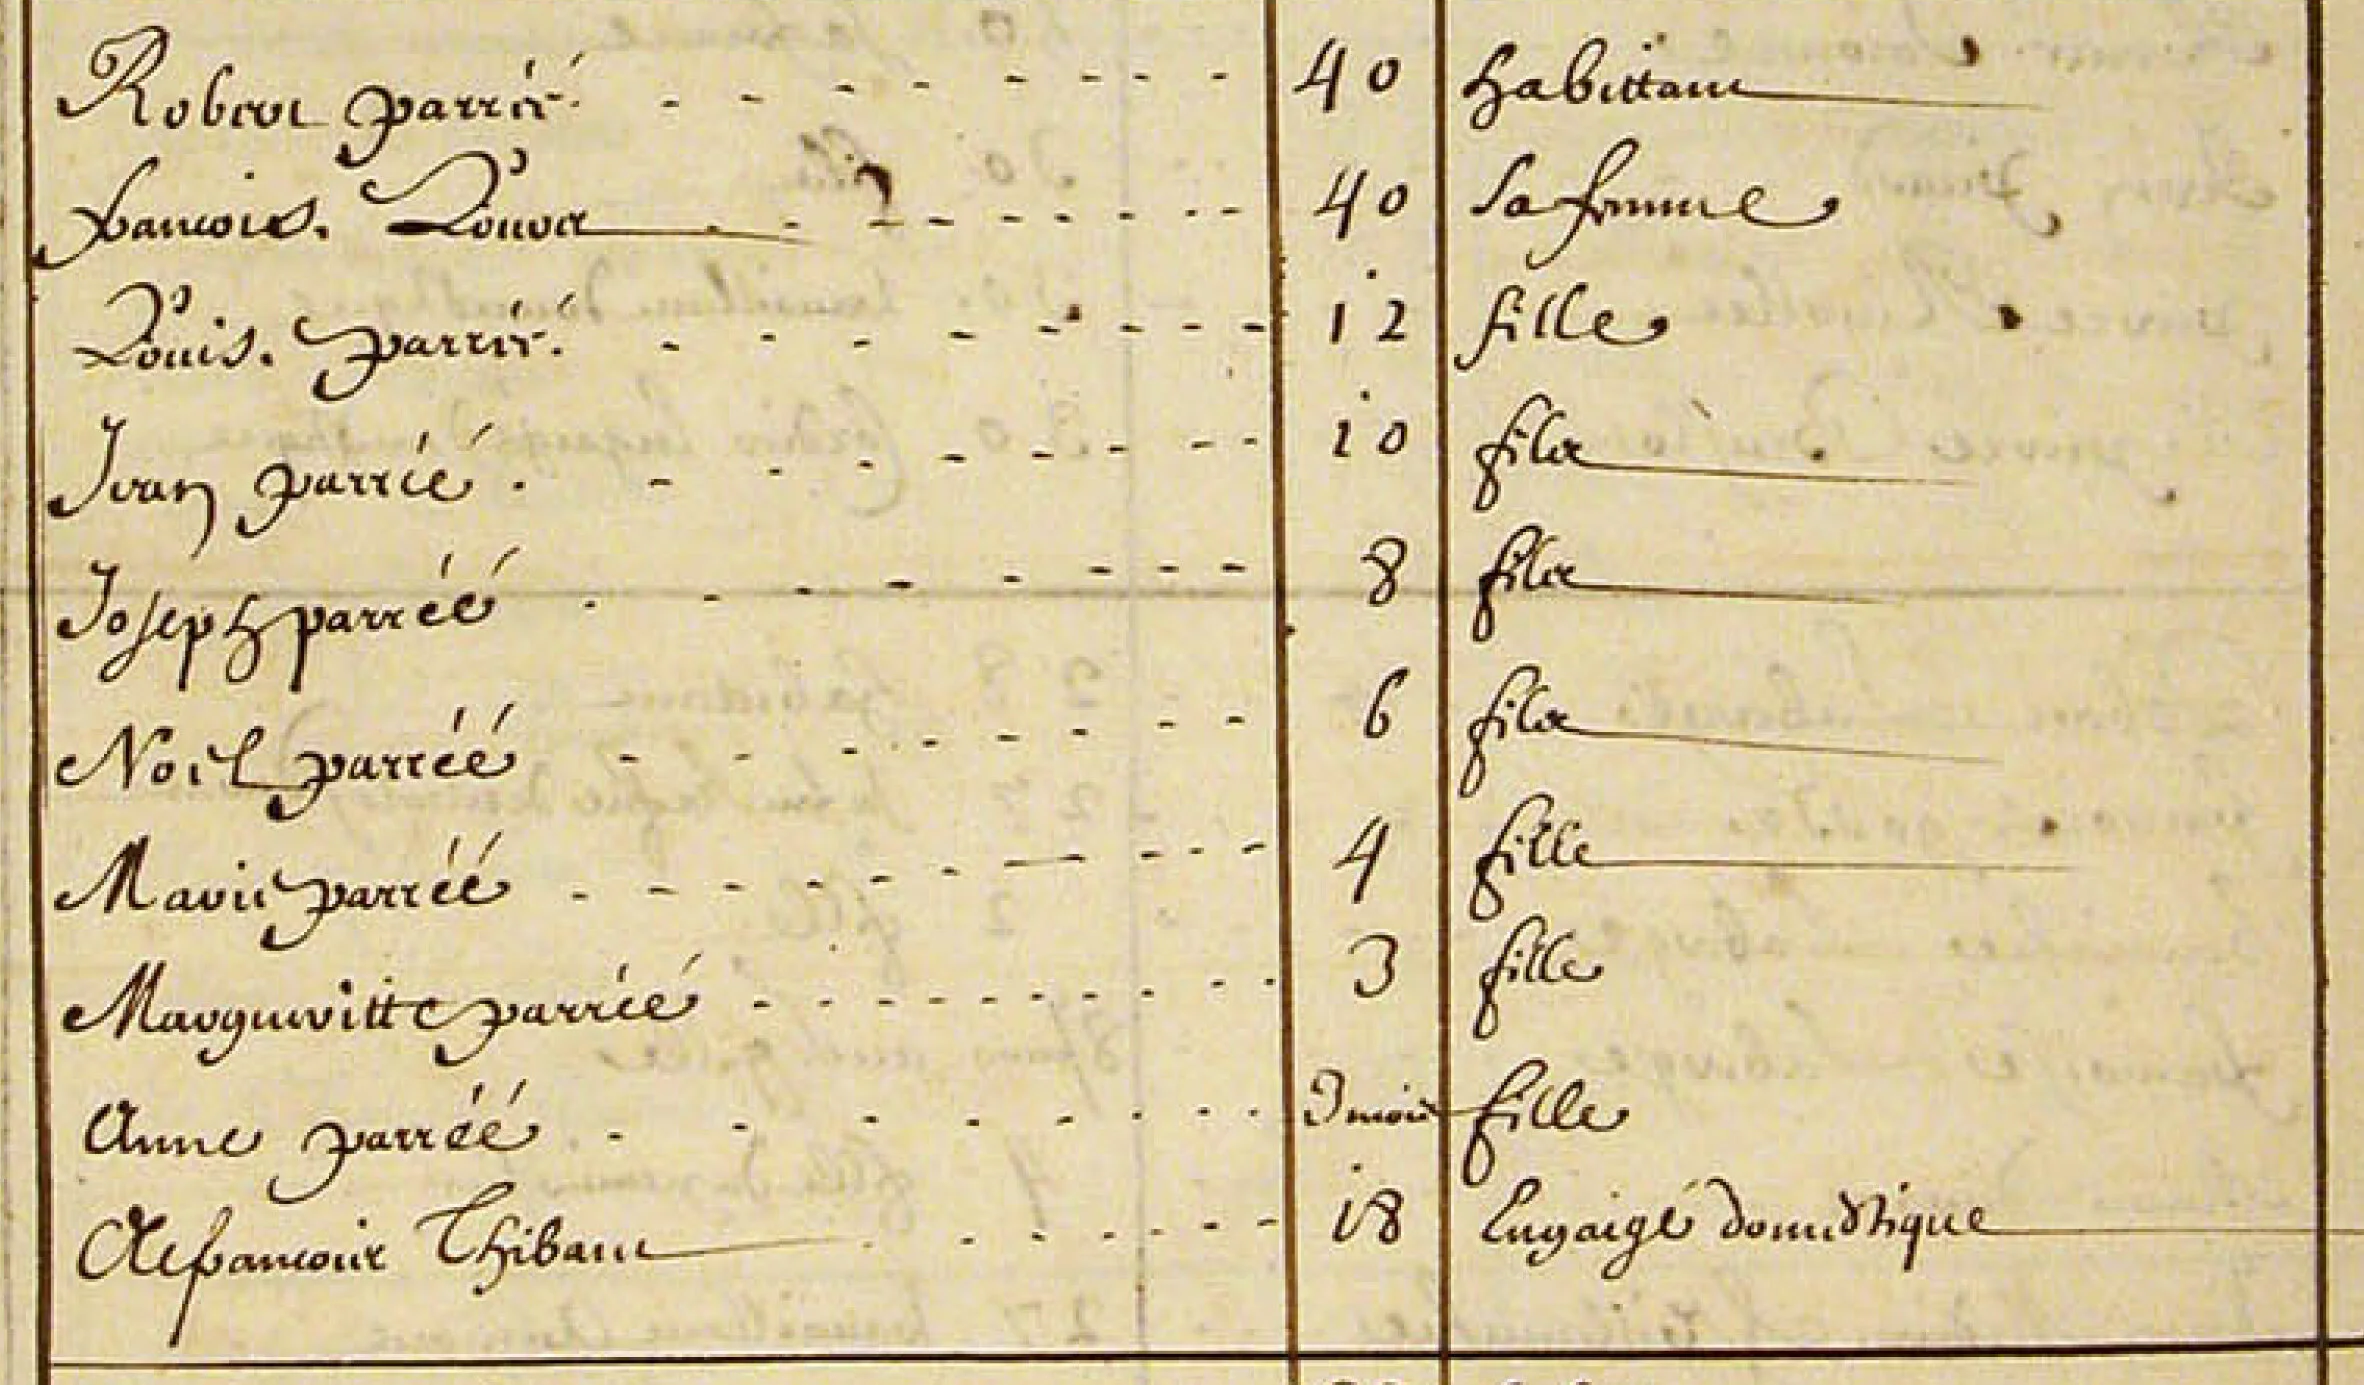 Robert parréé 40 habittant
francoise Louvet 40 Sa femme
Louise parréé 12 fille
Jean parréé 10 filz
Joseph parréé 8 filz
Noel parréé 6 filz
Marie parréé 4 fille
Margueritte parréé 3 fille
Anne parréé 3 mois fille
francois Thibaut 18 Engaigé domestique